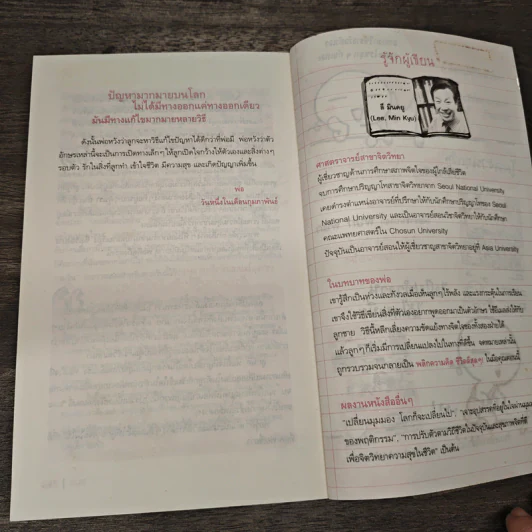 ปัญหามากมายบนโลก
ไม่ได้มีทางออกแค่ทางออกเดียว
มันมีทางแก้ไขมากมายหลายวิธี
ดังนั้นพ่อหวังว่าลูกจะหาวิธีแก้ไขปัญหาได้ดีกว่าที่พ่อมี พ่อหวังว่าตัว
อักษรเหล่านี้จะเป็นการเปิดทางเล็กๆ ให้ลูกเปิดใจกว้างให้ตัวเองและสิ่งต่างๆ
รอบตัว รักในสิ่งที่ลูกทำ เข้าใจชีวิต มีความสุข และเกิดปัญญาเพิ่มขึ้น
พ่อ
วันหนึ่งในเดือนกุมภาพันธ์
รู้จักผู้เขียน
ลี มินคยู
(Lee, Min Kyu)
ศาสตราจารย์สาขาจิตวิทยา
ผู้เชี่ยวชาญด้านการศึกษาสภาพจิตใจของผู้ใกล้เสียชีวิต
จบการศึกษาปริญญาโทสาขาจิตวิทยาจาก Seoul National University
เคยดำรงตำแหน่งอาจารย์ที่ปรึกษาให้กับนักศึกษาปริญญาโทของ Seoul
National University และเป็นอาจารย์สอนวิชาจิตวิทยาให้กับนักศึกษา
คณะแพทยศาสตร์ใน Chosun University
ปัจจุบันเป็นอาจารย์สอนให้ผู้เชี่ยวชาญสาขาจิตวิทยาอยู่ที่ Asia University
ในบทบาทของพ่อ
เขารู้สึกเป็นห่วงและกังวลเมื่อเห็นลูกๆ ไร้พลัง และแรงกระตุ้นในการเรียน
เขาจึงใช้วิธีเขียนสิ่งที่ตัวเองอยากพูดออกมาเป็นตัวอักษร ใช้อีเมลส่งให้กับ
ลูกชาย วิธีนี้หลีกเลี่ยงความขัดแย้งทางจิตใจของทั้งสองฝ่ายได้
แล้วลูกๆ ก็เริ่มมีการเปลี่ยนแปลงไปในทางที่ดีขึ้น จดหมายเหล่านั้น
ถูกรวบรวมจนกลายเป็น พลิกความคิด ชีวิตสุดๆ! ในมือคุณตอนนี้
ผลงานหนังสืออื่นๆ
"เปลี่ยนมุมมอง โลกก็จะเปลี่ยนไป", "เจาะอุปสรรคที่อยู่ในใจผ่านมุมมอง
ของพฤติกรรม", "การปรับตัวตามวิถีชีวิตในปัจจุบันและสุขภาพจิตที่ดี
เพื่อจิตวิทยาความสุขในชีวิต" เป็นต้น